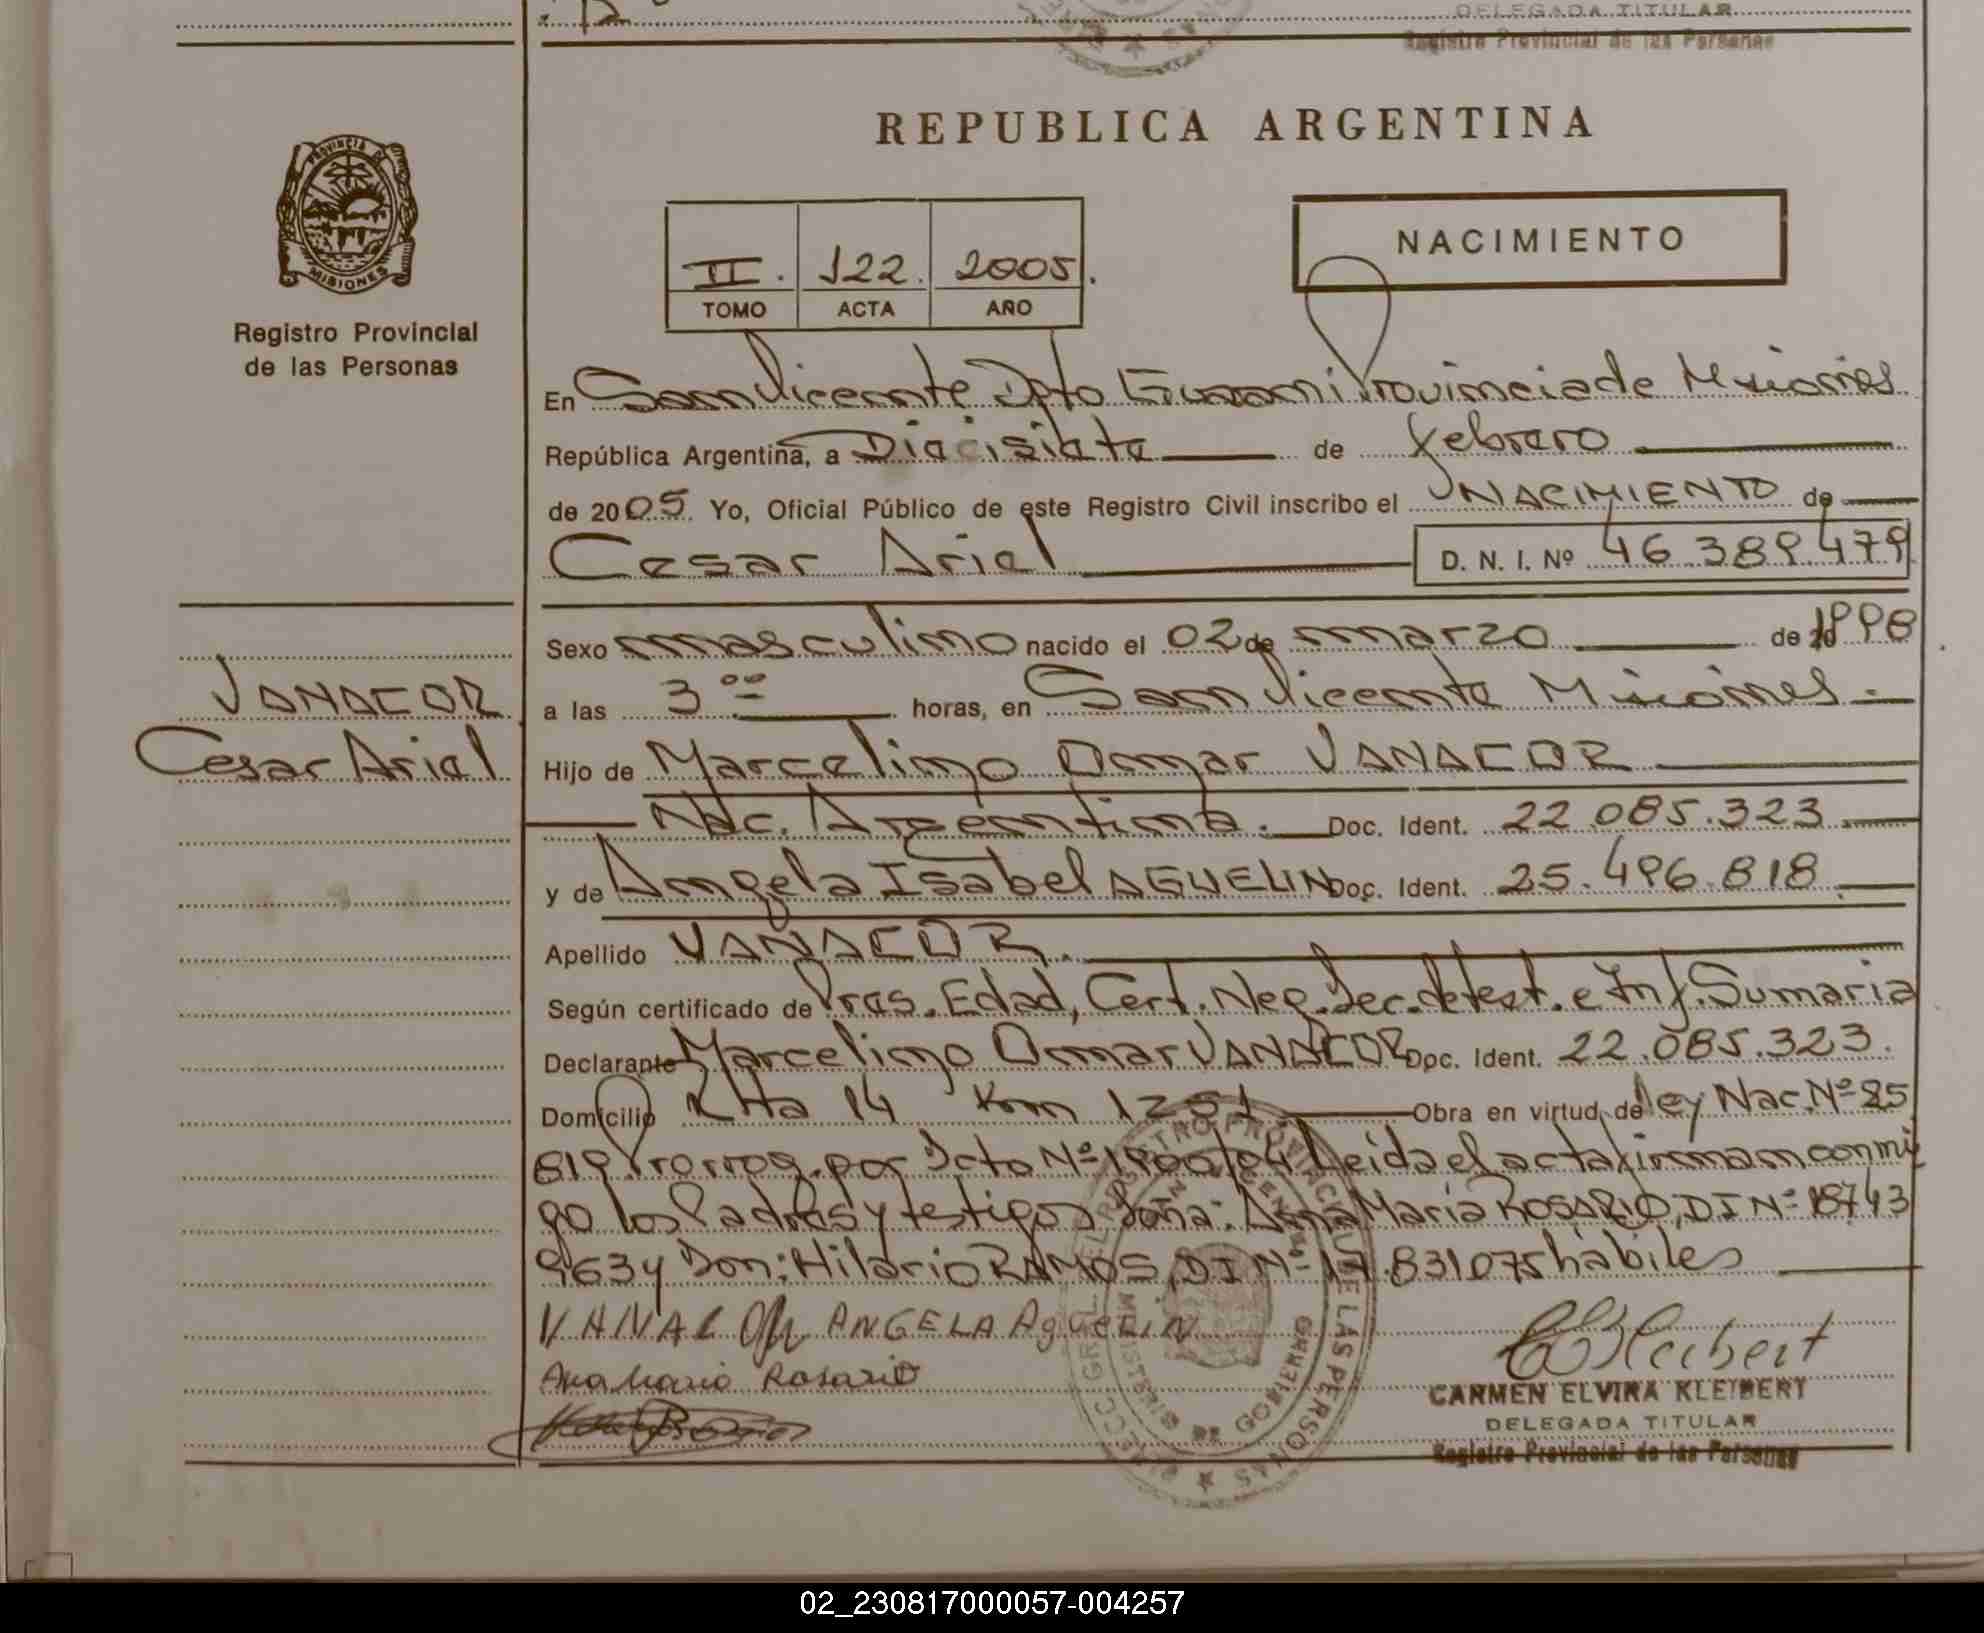 DELEGADA TITULAR
Registro Provincial de las Personas
REPUBLICA ARGENTINA
PROVINCIA DE
MISIONES
Registro Provincial
de las Personas
II. 122. 2005.
TOMO ACTA AÑO
NACIMIENTO
En San Vicente Dpto Guarani Provincia de Misiones
República Argentina, a Diecisiete de Febrero
de 2005. Yo, Oficial Público de este Registro Civil inscribo el NACIMIENTO de
Cesar Ariel D. N. I. Nº 46.389.479
Sexo masculino nacido el 02 de marzo de 1998
VANACOR
a las 3 ºº horas, en San Vicente Misiones.
Cesar Ariel
Hijo de Marcelino Omar VANACOR
Nac. Argentina. Doc. Ident. 22.085.323
y de Angela Isabel AGUELIN Doc. Ident. 25.496.818
Apellido VANACOR.
Según certificado de Pres. Edad, Cert. Neg. Dec. de test. e Inf. Sumaria
Declarante Marcelino Omar VANACOR Doc. Ident. 22.085.323.
Domicilio Rta 14 Km 1251 Obra en virtud de ley Nac. Nº 25
819 Prorrog. por Dcto Nº Leida el acta firman conmi
go los Padres y testigos Doña: Ana Maria ROSARIO, DI Nº 18743
963 y Don: Hilario RAMOS, DI Nº 17.831075 hábiles
VANACOR ANGELA AgUELIN
Ana Maria Rosario
CKleibert
CARMEN ELVIRA KLEIBERT
DELEGADA TITULAR
Registro Provincial de las Personas
02_230817000057-004257